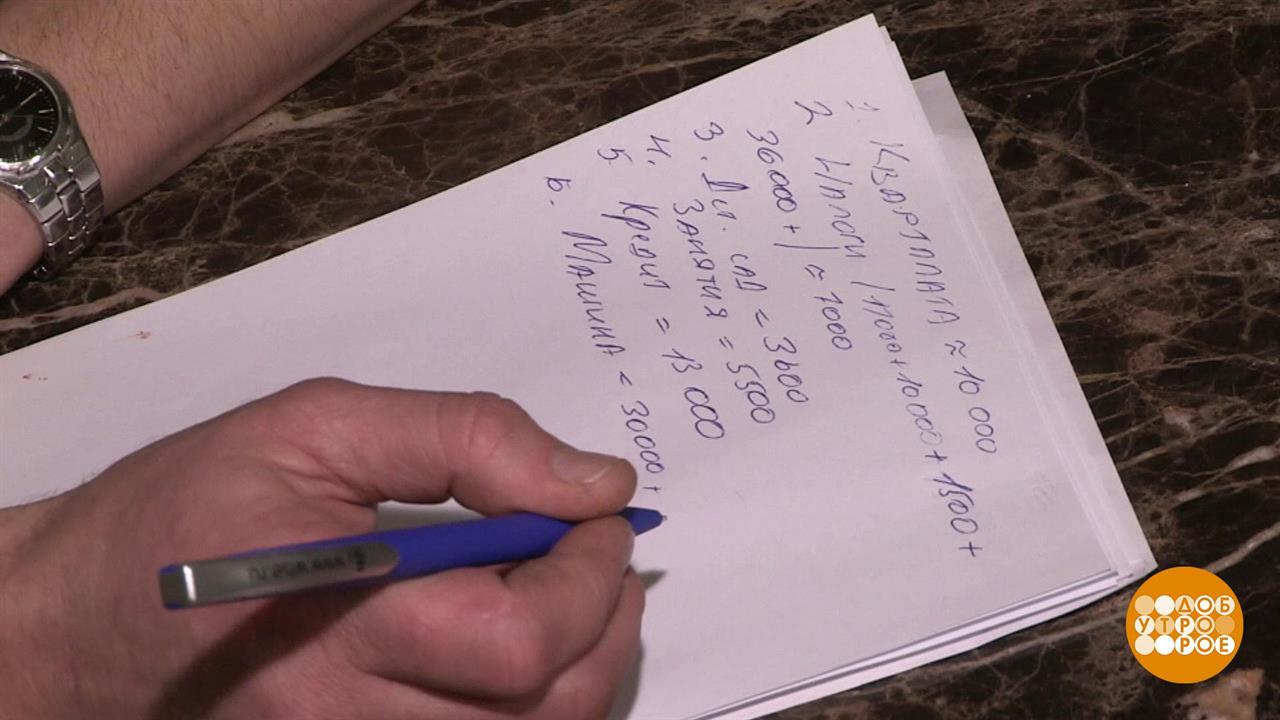 1 КВАРТПЛАТА ≈ 10 000
2 НАЛОГИ (11000+10000+1500+
36000+) ≈ 7000
3. Дет. САД = 3600
4. ЗАНЯТИЯ = 5500
5 Кредит = 13 000
6. МАШИНА = 30000+
ДОБ
УТРО
РОЕ